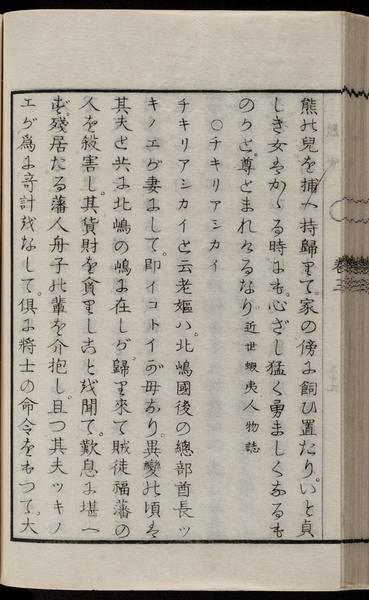 熊の兒を捕へ持歸りて。家の傍に飼ひ置たり。いと貞
しき女はかゝる時にも。心ざし猛く勇ましくなるも
のらと。尊とまれけるなり 近世蝦夷人物誌
○チキリアシカイ
チキリアシカイと云老嫗ハ。北嶋國後の總部酋長ツ
キノエが妻にして。即イコトイが母なり。異變の頃は
其夫と共に北嶋の嶋に在しが。歸り來て賊徒福藩の
人を殺害し。其貨財を貪りしと残聞て。歎息に堪へ
ず。殘居たる藩人舟子の輩を介抱し。且つ其夫ツキノ
エが爲に奇計残なして。俱に將士の命令をもつて。大
卷二